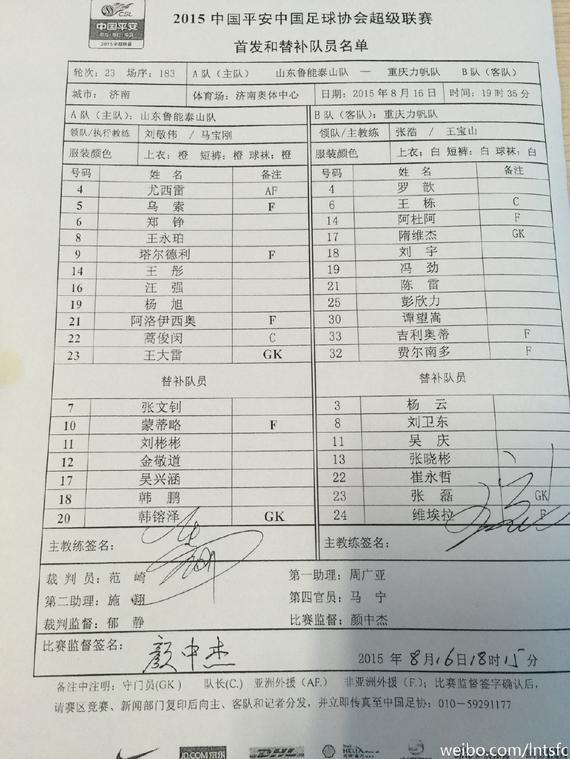 CSL
中国平安
2015 中国平安中国足球协会超级联赛
首发和替补队员名单
轮次：23 场序：183 A 队（主队） 山东鲁能泰山队 — 重庆力帆队 B 队（客队）
城市： 济南 体育场：济南奥体中心 日期：2015 年 8 月 16 日 时间：19 时 35 分
A 队（主队）：山东鲁能泰山队 B 队（客队）：重庆力帆队
领队/执行教练 刘敬伟 / 马宝刚 领队/主教练 张浩 / 王宝山
服装颜色 上衣：橙 短裤：橙 球袜：橙 服装颜色 上衣：白 短裤：白 球袜：白
号码 姓 名 备注 号码 姓 名 备注
4 尤西雷 AF 4 罗 歆
5 乌 索 F 6 王 栋 C
6 郑 铮 14 阿杜阿 F
8 王永珀 17 隋维杰 GK
9 塔尔德利 F 18 刘 宇
14 王 彤 19 冯 劲
16 汪 强 21 陈 雷
19 杨 旭 25 彭欣力
21 阿洛伊西奥 F 30 谭望嵩
22 蒿俊闵 C 33 吉利奥蒂 F
23 王大雷 GK 32 费尔南多 F
替补队员 替补队员
7 张文钊 3 杨 云
10 蒙蒂略 F 8 刘卫东
11 刘彬彬 11 吴 庆
12 金敬道 13 张晓彬
17 吴兴涵 22 崔永哲
18 韩 鹏 23 张 磊 GK
20 韩镕泽 GK 24 维埃拉 F
主教练签名： 主教练签名：
裁 判 员：范 崎 第一助理：周广亚
第二助理：施 翔 第四官员：马 宁
裁判监督：郁 静 比赛监督：颜中杰
比赛监督签名： 颜中杰 2015 年 8月16日18时15分
备注中注明：守门员(GK) 队长(C.) 亚洲外援（AF.） 非亚洲外援（F.）；比赛监督签字确认后，
请赛区竞赛、新闻部门复印后向主、客队和记者分发，并立即传真至中国足协：010-59291177
JD.COM DHL HELIX
weibo.com/lntsfc